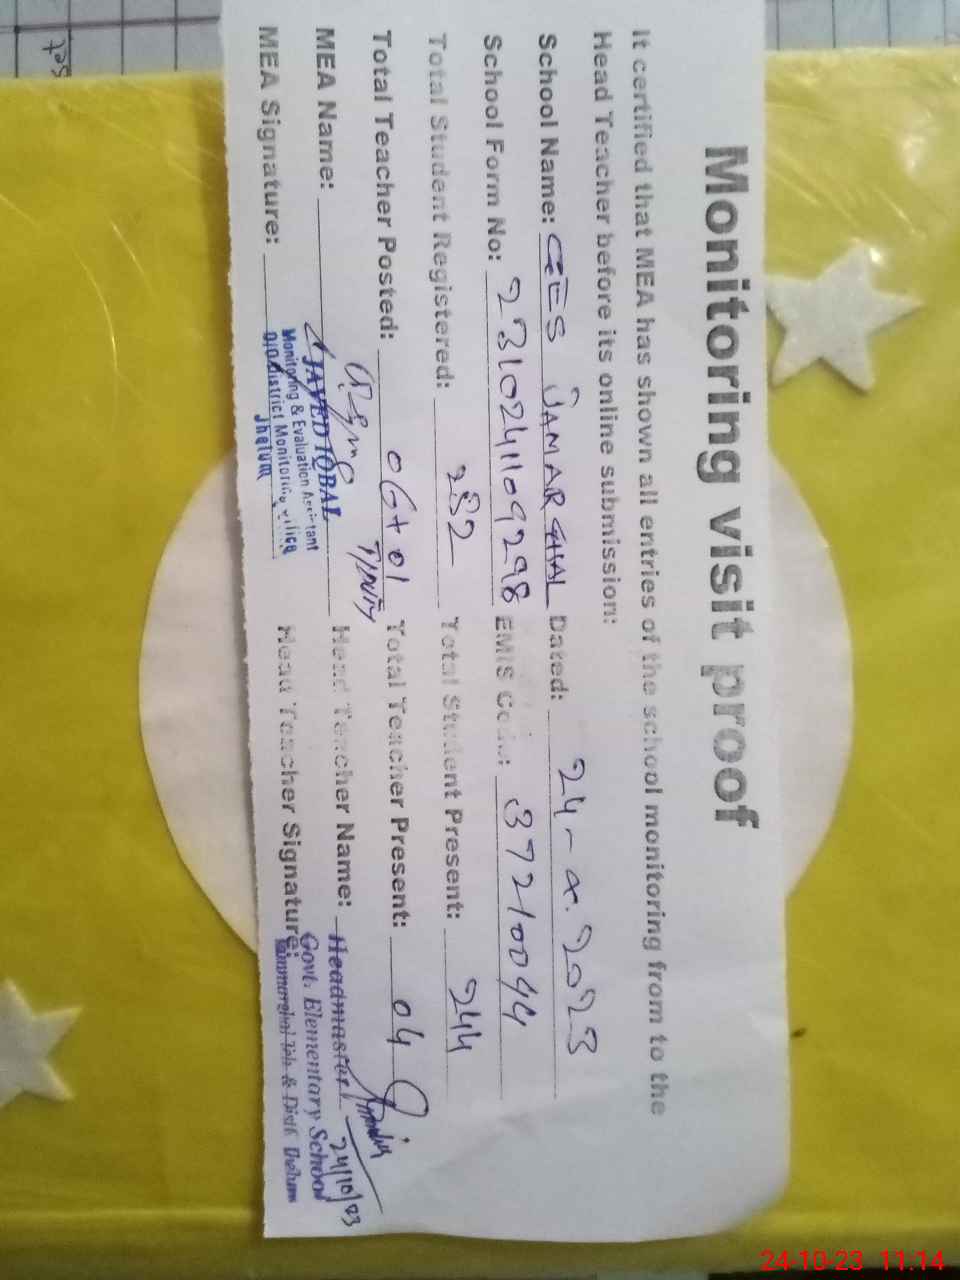 Monitoring visit proof
It certified that MEA has shown all entries of the school monitoring from to the
Head Teacher before its online submission:
School Name: GES SAMARGHAL Dated: 24-x-2023
School Form No: 2310241109298 EMIS Code: 37210044
Total Student Registered: 282 Total Student Present: 244
Total Teacher Posted: 06+01 Total Teacher Present: 04
MEA Name: JAVED IQBAL Head Teacher Name: Headmaster
Monitoring & Evaluation Assistant
Govt. Elementary School
24/10/23
MEA Signature: O/O District Monitoring Office Head Teacher Signature: Teh & Distt Jhelum
Jhelum
24-10-23 11:14